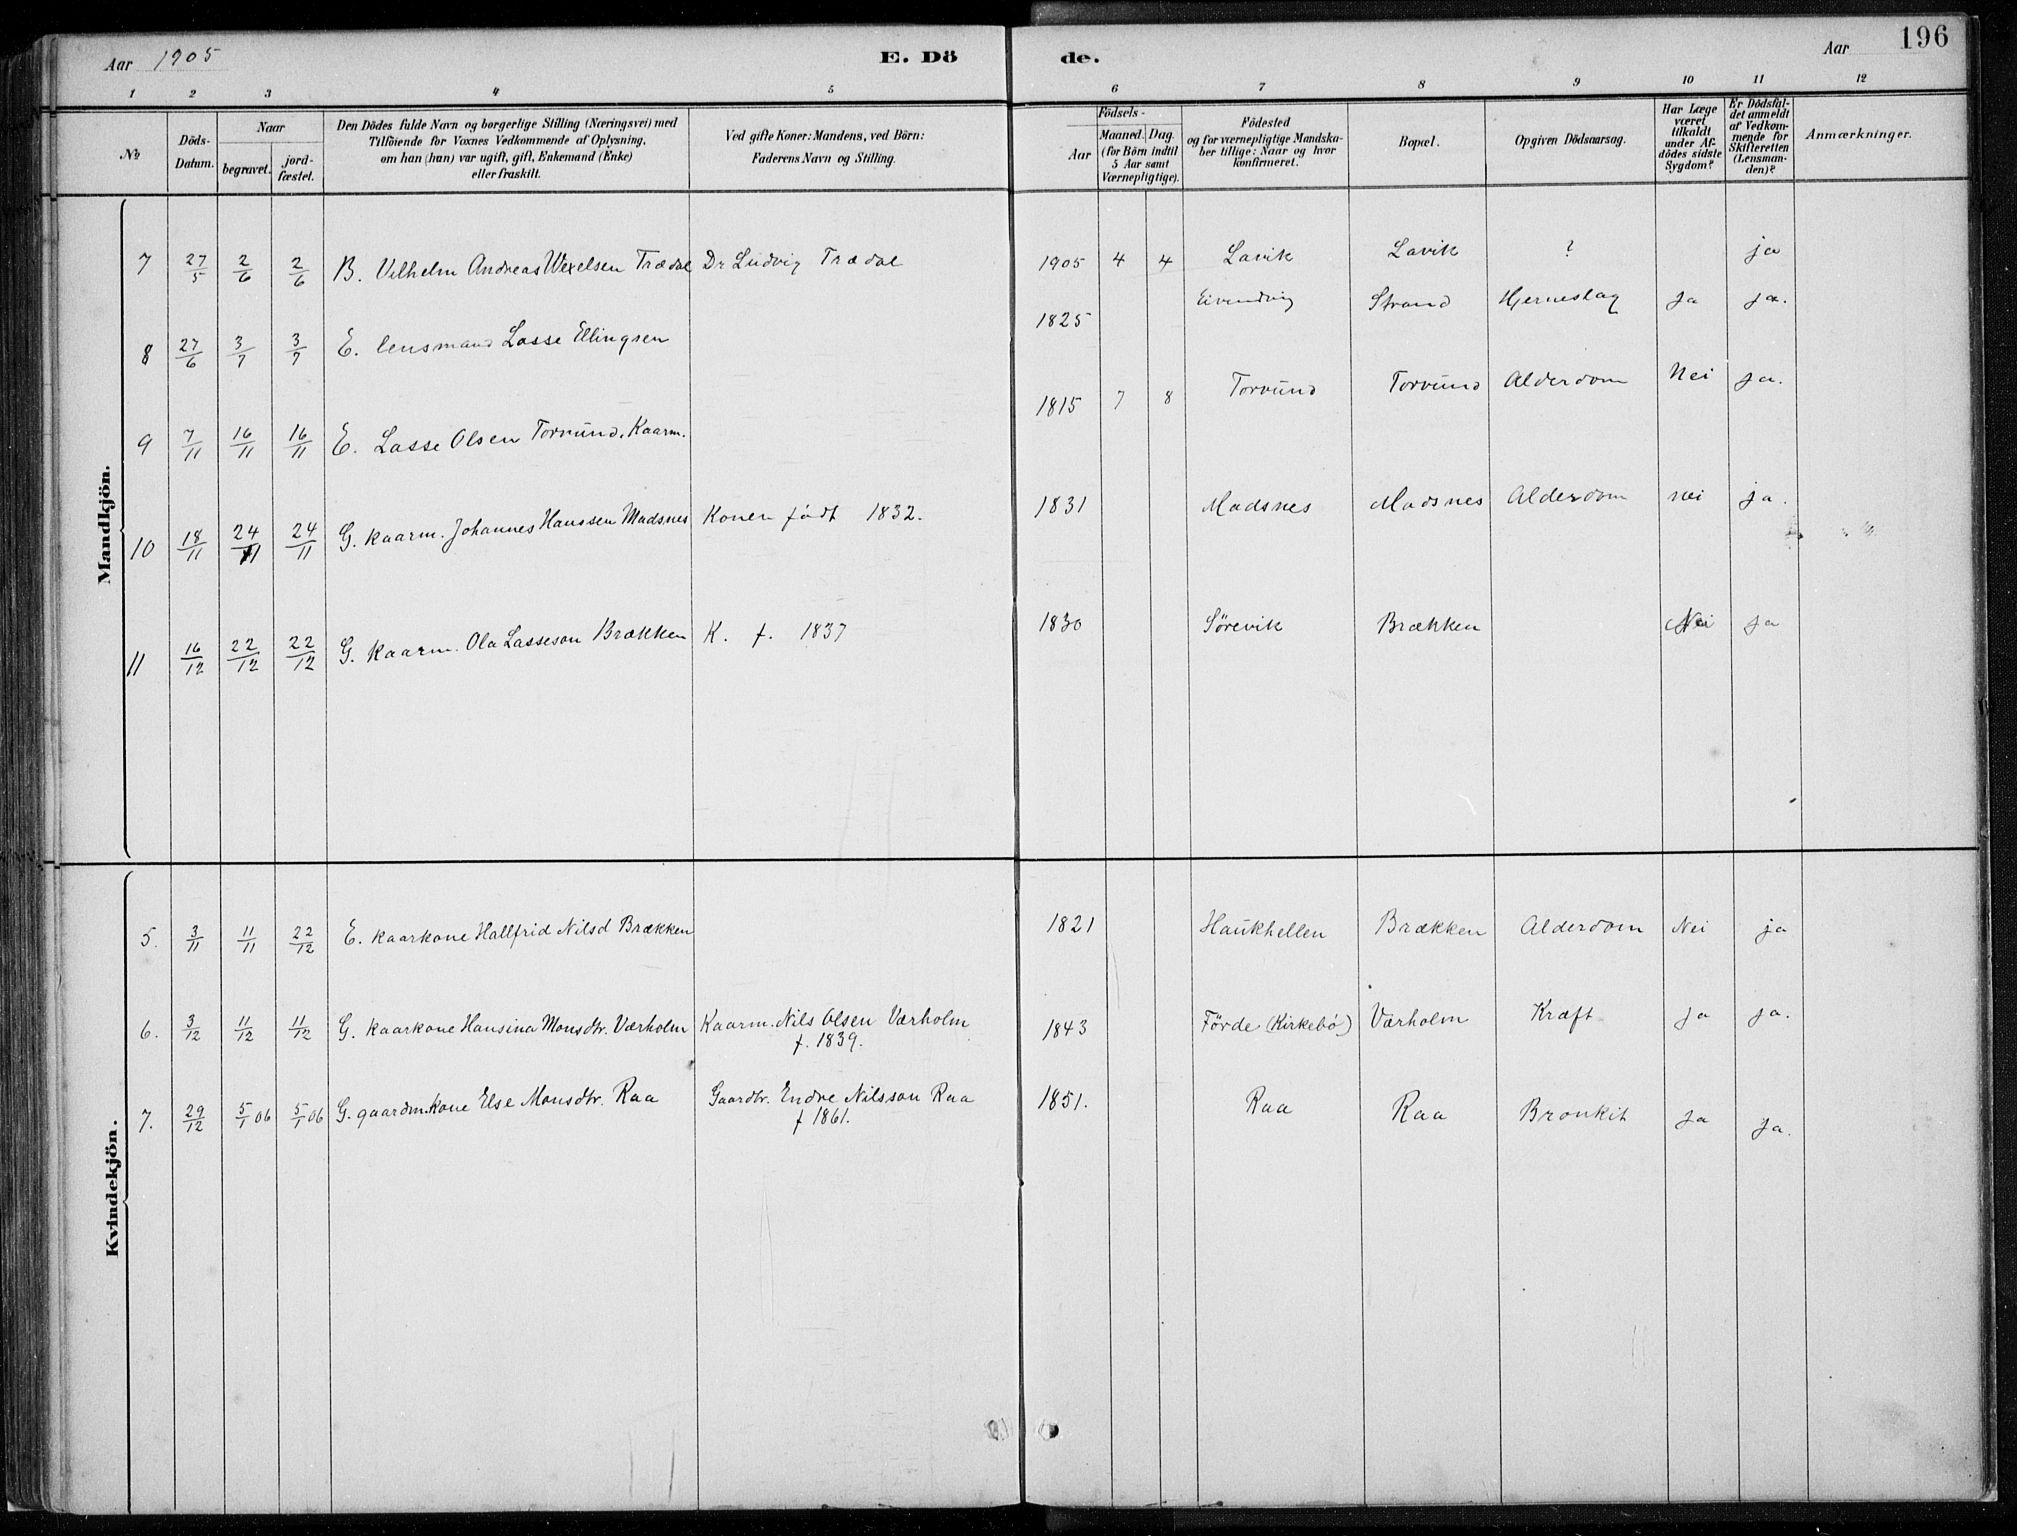 Aar 1905 E. Dö de. Aar 196
1 2 3 4 5 6 7 8 9 10 11 12
№
Döds-Datum.
Naar
begravet.
jord-fæstet.
Den Dödes fulde Navn og borgerlige Stilling (Næringsvei) med
Tilföiende for Voxnes Vedkommende af Oplysning,
om han (hun) var ugift, gift, Enkemand (Enke)
eller fraskilt.
Ved gifte Koner: Mandens, ved Börn:
Faderens Navn og Stilling.
Födsels-
Aar
Maaned. Dag.
(for Börn indtil
5 Aar samt
Værnepligtige).
Födested
og for værnepligtige Mandska-
ber tillige: Naar og hvor
konfirmeret.
Bopæl.
Opgiven Dödsaarsag.
Har Læge
været
tilkaldt
under Af-
dödes sidste
Sygdom?
Er Dödsfal-
det anmeldt
af Vedkom-
mende for
Skifteretten
(Lensman-
den)?
Anmærkninger.
Mandkjön.
7 27/5 2/6 2/6 B. Vilhelm Andreas Wexelsen Trædal Dr Ludvig Trædal 1905 4 4 Lavik Lavik ? ja
8 27/6 3/7 3/7 E. lensmand Lasse Ellingsen 1825 Eivindvig Strand Hjerneslag Ja ja.
9 7/11 16/11 16/11 E. Lasse Olsen Torvund. Kaarm. 1815 7 8 Torvund Torvund Alderdom Nei ja.
10 18/11 24/11 24/11 G. Kaarm. Johannes Hanssen Madsnes Konen født 1832. 1831 Madsnes Madsnes Alderdom nei ja.
11 16/12 22/12 22/12 G. Kaarm. Ola Lasseson Brækken K. f. 1837 1830 Sørevik Brækken Nei ja
Kvindekjön.
5. 3/11 11/11 22/12 E. Kaarkone Hallfrid Nilsd Brækken 1821 Haukhellen Brækken Alderdom Nei ja
6. 3/12 11/12 11/12 G. Kaarkone Hansina Monsdtr. Værholm Kaarm. Nils Olsen Værholm 1843 Førde (Kirkebø) Værholm Kræft Ja ja.
f. 1839.
7. 29/12 5/1 06 5/1 06 G. gaardm.kone Else Monsdtr. Raa Gaardbr. Endre Nilsson Raa 1851. Raa Raa Bronkit Ja ja.
f 1861.